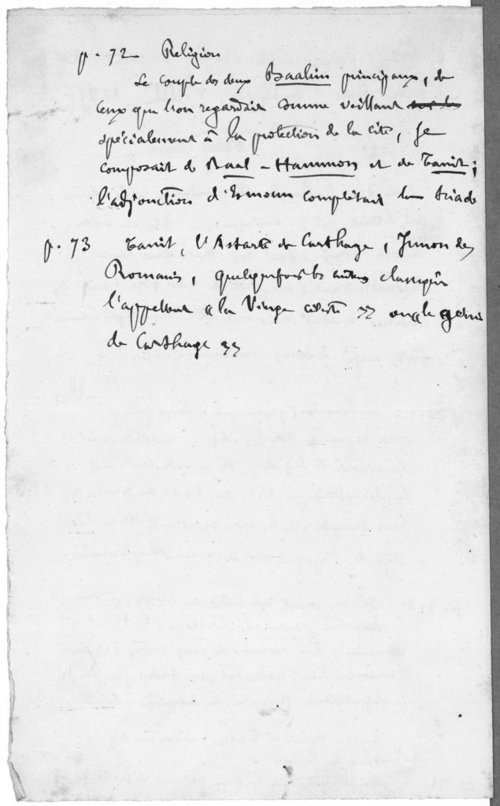 p. 72 Religion
Le couple des deux Baalim principaux, de
ceux que l'on regardait comme veillant
spécialement à la protection de la cité, se
composait de Baal-Hammon et de Tanit ;
l'adjonction d'Esmoun complétait la triade
p. 73 Tanit, l'Astarté de Carthage, Junon des
Romains, quelquefois les auteurs classiques
l'appellent « la Vierge céleste » ou « le génie
de Carthage »